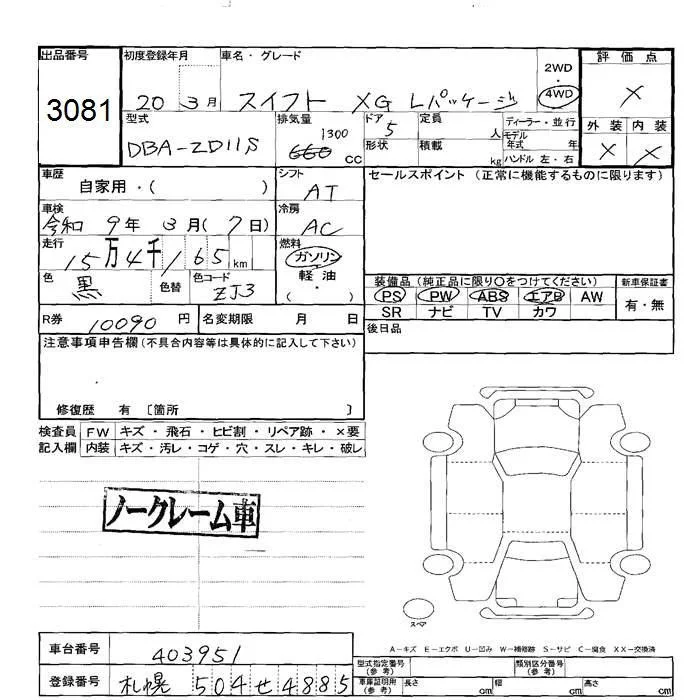 出品番号 初度登録年月 車名・グレード 2WD・4WD 評価点
3081 20 3月 スイフト XG Lパッケージ ×
型式 排気量 ドア 定員 ディーラー・並行 外装 内装
DBA-ZD11S 1300 660 cc 5 人 モデル年式 年 × ×
形状 積載 kg ハンドル 左・右
車歴 自家用・( ) シフト AT セールスポイント(正常に機能するものに限ります)
車検 令和9年3月(7日) 冷房 AC
走行 15万4千165km 燃料 ガソリン 軽油 ・( )
色 黒 色替 色コード ZJ3 装備品(純正品に限り○をつけてください) 新車保証書
PS PW ABS エアB AW 有・無
SR ナビ TV カワ
R券 10090円 名変期限 月 日 後日品
注意事項申告欄(不具合内容等は具体的に記入して下さい)
修復歴 有 〔箇所 〕
検査員 FW キズ・飛石・ヒビ割・リペア跡・×要
記入欄 内装 キズ・汚レ・コゲ・穴・スレ・キレ・破レ
ノークレーム車
スペア
A-キズ E-エクボ U-凹み W-補修跡 S-サビ C-腐食 XX-交換済
車台番号 403951 型式指定番号(参考) 類別区分番号(参考)
登録番号 札幌 504 せ 4885 車庫証明用(参考) 長さ cm 幅 cm 高さ cm